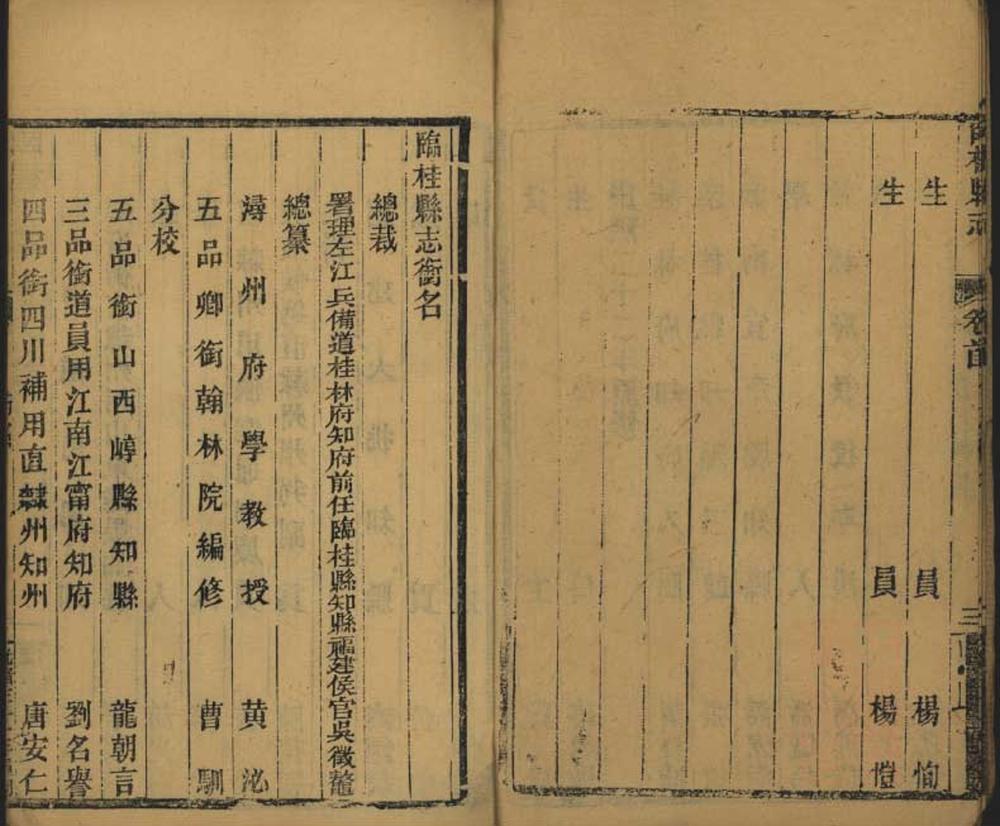 臨桂縣志 卷首 三
生員楊恂
生員楊愷
臨桂縣志銜名
總裁
署理左江兵備道桂林府知府前任臨桂縣知縣福建侯官吳徵鼇
總纂
潯州府學教授黃泌
五品卿銜翰林院編修曹馴
分校
五品銜山西崞縣知縣龍朝言
三品銜道員用江南江甯府知府劉名譽
四品銜四川補用直隸州知州唐安仁